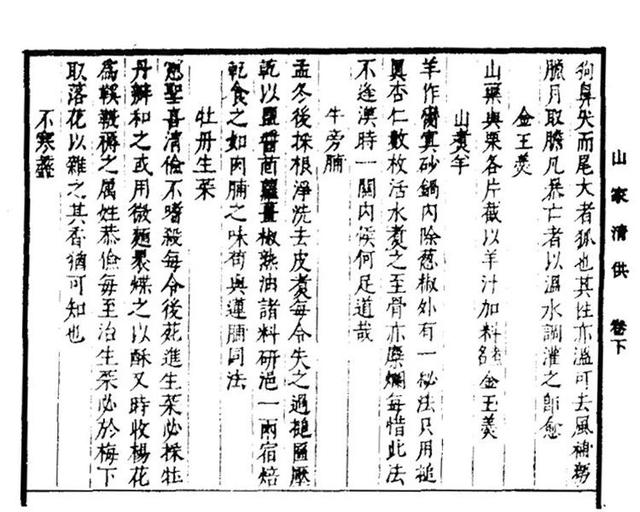 山家清供 卷下
狗鼻尖而尾大者狐也其性亦溫可去風補勞
臘月取膽凡暴亡者以溫水調灌之即愈
金玉羹
山藥與栗各片截以羊汁加料金玉羹
山煮羊
羊作臠寘砂鍋內除葱椒外有一秘法只用搥
眞杏仁數枚活水煮之至骨亦糜爛每惜此法
不逢漢時一關內侯何足道哉
牛旁脯
孟冬後採根淨洗去皮煮每令失之過搥匾壓
乾以鹽醬茴蘿薑椒熟油諸料研浥一兩宿焙
乾食之如肉脯之味荀與蓮脯同法
牡丹生菜
憲聖喜清儉不嗜殺每令後苑進生菜必採牡
丹瓣和之或用微麵裹煠之以酥又時收楊花
爲鞵韈褥之属姓恭儉每至治生菜必於梅下
取落花以雜之其香猶可知也
不寒虀